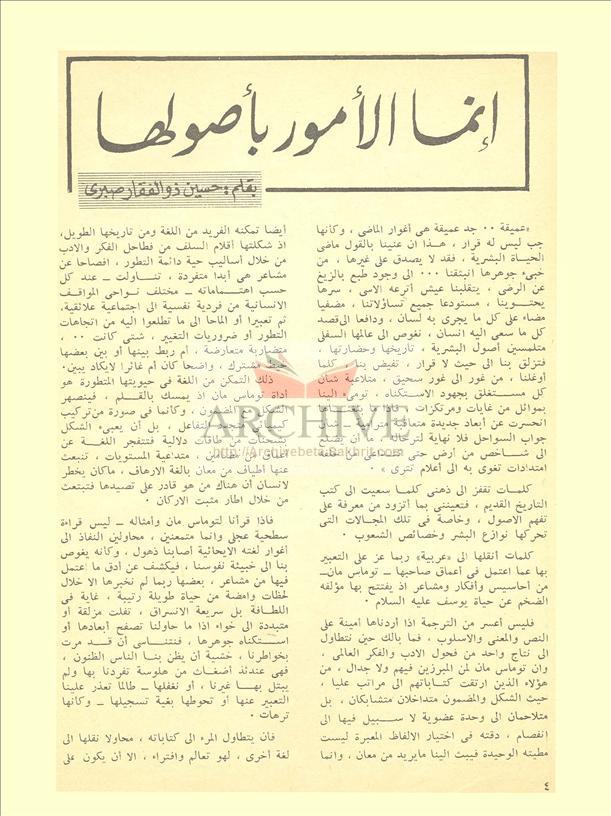 إنما الأمور بأصولها
بقلم : حسين ذو الفقار صبرى
« عميقة ٠٠ جد عميقة هى أغوار الماضى ، وكأنها
جب ليس له قرار ، هذا ان عنينا بالقول ماضى
الحياة البشرية ، فقد لا يصدق على غيرها ، من
خبىء جوهرها انبثقنا ٠٠٠ الى وجود طبع بالزيغ
عن الرضى ، يتقلبنا عيش أترعه الاسى ، سرها
يحتوينا ، مستودعا جميع تساؤلاتنا ، مضفيا
مضاء على كل ما يجرى به لسان ، ودافعا الى قصد
كل ما سعى اليه انسان ، نغوص الى عالمها السفلى
متلمسين أصول البشرية ، تاريخها وحضارتها ،
فتنزلق بنا الى حيث لا قرار ، تفيض بنا كلما
أوغلنا ، من غور الى غور سحيق ، متلاعبة شأن
كل مستغلق بجهود الاستكناه ، تومىء الينا
بموائل من غايات ومرتكزات
انحسرت عن أبعاد جديدة
جواب السواحل فلا نهاية لترحاله ، ما ان يصل
الى شاخص من أرض حتى
امتدادات تغوى به الى أعلام تترى » ٠
كلمات تقفز الى ذهنى كلما سعيت الى كتب
التاريخ القديم ، فتعيننى بما أتزود من معرفة على
تفهم الاصول ، وخاصة فى تلك المجالات التى
تحركها نوازع البشر وخصائص الشعوب ٠
كلمات أنقلها الى « عربية » ربما عز على التعبير
بها عما اعتمل فى أعماق صاحبها ــ توماس مان ــ
من أحاسيس وأفكار ومشاعر اذ يفتتح بها مؤلفه
الضخم عن حياة يوسف عليه السلام ٠
فليس أعسر من الترجمة اذا أردناها أمينة على
النص والمعنى والاسلوب ، فما بالك حين نتطاول
الى نتاج واحد من فحول الادب والفكر العالمى ،
وان توماس مان لمن المبرزين فيهم ولا جدال ، من
هؤلاء الذين ارتقت كتاباتهم الى مراتب عليا ،
حيث الشكل والمضمون متداخلان متشابكان ، بل
متلاحمان الى وحدة عضوية لا سبيل فيها الى
انفصام ، دقته فى اختيار الالفاظ المعبرة ليست
مطيته الوحيدة فيبث الينا ما يريد من معان ، وانما
أيضا تمكنه الفريد من اللغة ومن تاريخها الطويل ،
اذ شكلتها أقلام السلف من فطاحل الفكر والادب
من خلال أساليب حية دائمة التطور ، افصاحا عن
مشاعر هى أبدا متفردة ، تناولت ــ عند كل
حسب اهتماماته ــ مختلف نواحى المواقف
الانسانية من فردية نفسية الى اجتماعية علائقية ،
ثم تعبيرا أو الماحا الى ما تطلعوا اليه من اتجاهات
التطور أو ضروريات التغيير ، شتى كانت ٠٠ ،
متضاربة متعارضة ، أم ربط بينها أو بين بعضها
خيط مشترك ، واضحا كان أم غائرا لا يكاد يبين ٠
ذلك التمكن من اللغة فى حيويتها المتطورة هو
أداة توماس مان اذ يمسك بالقلم ، فينصهر
الشكل والمضمون ، وكأنما فى صورة من تركيب
التفاعل ، بل أن يعبىء الشكل
بشحنات من طاقات دلالية فتتفجر اللغة عن
أعماق من مضامين ، متداعية المستويات ، تنبعث
عنها أطياف من معان بالغة الارهاف ، ما كان يخطر
لانسان أن هناك من هو قادر على تصيدها فتبتعث
من خلال اطار مثبت الاركان ٠
فاذا قرأنا لتوماس مان وأمثاله ــ ليس قراءة
سطحية عجلى وانما متمعنين ، محاولين النفاذ الى
أغوار لغته الايحائية أصابنا ذهول ، وكأنه يغوص
بنا الى خبيئة نفوسنا ، فيكشف عن أدق ما اعتمل
فيها من مشاعر ، بعضها ربما لم نخبرها الا خلال
لحظات وامضة من حياة طويلة رتيبة ، غاية فى
اللطافة بل سريعة الانسراق ، تفلت مزلقة أو
متبددة الى خواء اذا ما حاولنا تصفح أبعادها أو
استكناه جوهرها ، فنتناسى أن قد مرت
بخواطرنا ، خشية أن يظن بنا الناس الظنون ،
فهى عندئذ أضغاث من هلوسة تفردنا بها ولم
يبتل بها غيرنا ، أو نغفلها ــ طالما تعذر علينا
التعبير عنها أو تحوطها بغية تسجيلها ــ وكأنها
ترهات ٠
فأن يتطاول المرء الى كتاباته ، محاولا نقلها الى
لغة أخرى ، لهو تعالم وافتراء ، الا أن يكون على
٤
ARCHIVE
http://Archivebeta.Sakhrit.com